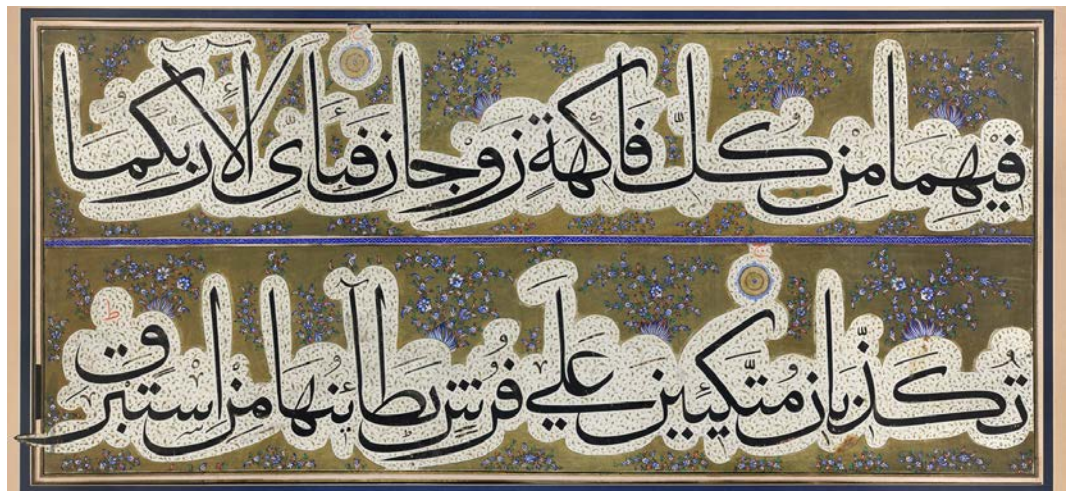 فِيهِمَا مِنْ كُلِّ فَاكِهَةٍ زَوْجَانِ فَبِأَيِّ آلَاءِ رَبِّكُمَا
تُكَذِّبَانِ مُتَّكِئِينَ عَلَى فُرُشٍ بَطَائِنُهَا مِنْ إِسْتَبْرَقٍ